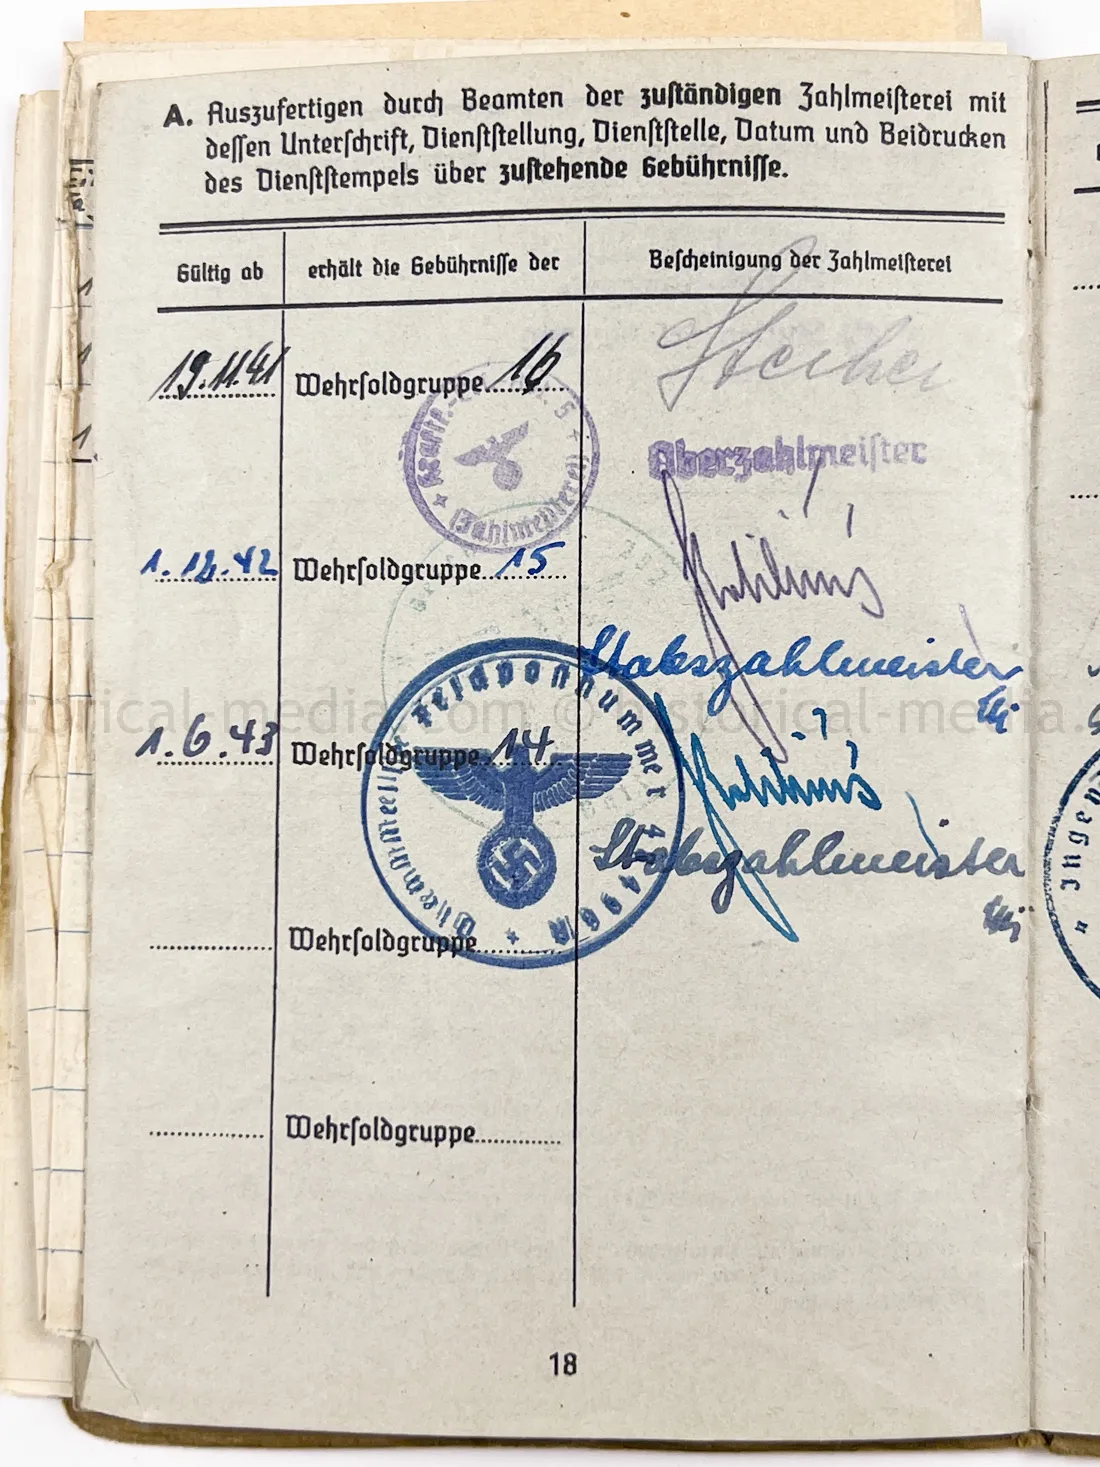 A. Auszufertigen durch Beamten der zuständigen Zahlmeisterei mit
dessen Unterschrift, Dienststellung, Dienststelle, Datum und Beidrucken
des Dienststempels über zustehende Gebührnisse.
Gültig ab
erhält die Gebührnisse der
Bescheinigung der Zahlmeisterei
19.11.41
Wehrsoldgruppe 16
Oberzahlmeister
Zahlmeisterei
1.12.42
Wehrsoldgruppe 15
Stabszahlmeister
historical-media.com © historical-media.
1.6.43
Wehrsoldgruppe 14
Dienststelle Feldpostnummer
Stabszahlmeister
Wehrsoldgruppe
Wehrsoldgruppe
18